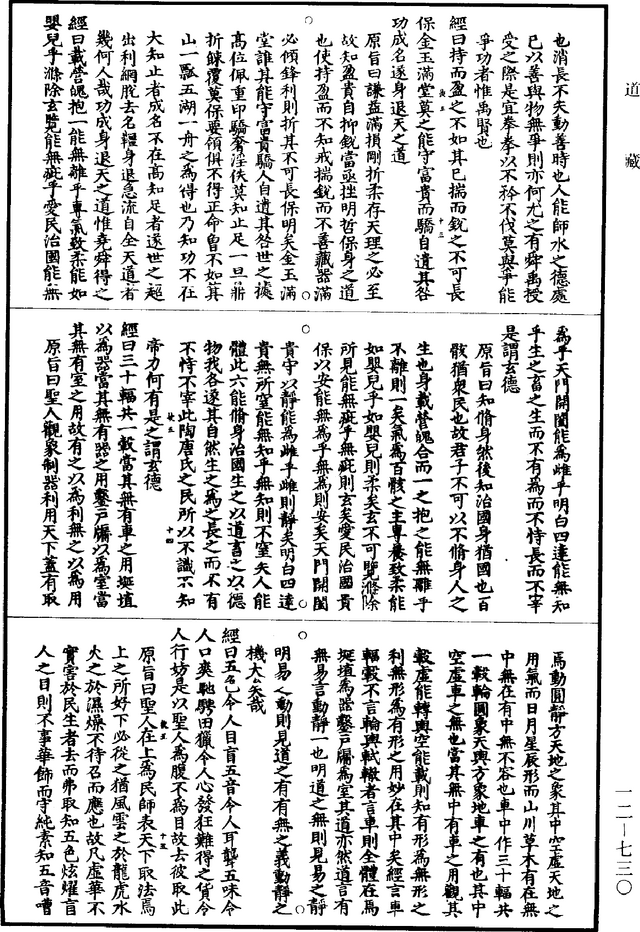 道藏
也消長不失動善時也人能師水之德處
已以善與物無爭則亦何尤之有舜禹授
受之際是宜拳拳以不矜不伐莫與爭能
爭功者惟禹賢也
經曰持而盈之不如其已揣而銳之不可長
保金玉滿堂莫之能守富貴而驕自遺其咎
功成名遂身退天之道
原旨曰謙益滿損剛折柔存天理之必至
故知盈貴自抑銳當亟挫明哲保身之道
也使持盈而不知戒揣銳而不善藏器滿
必傾鋒利則折其不可長保明矣金玉滿
堂誰其能守富貴驕人自遺其咎世之據
高位佩重印驕奢淫佚莫知止足一旦鼎
折餗覆莫保要領俱不得正命曾不如箕
山一瓢五湖一舟之為得也乃知功不在
大知止者成名不在高知足者遂世之超
出利網脫去名韁身退急流自全天道者
幾何人哉功成身退天之道惟堯舜得之
經曰載營魄抱一能無離乎專氣致柔能如
嬰兒乎滌除玄覽能無疵乎愛民治國能無
為乎天門開闔能為雌乎明白四達能無知
乎生之畜之生而不有為而不恃長而不宰
是謂玄德
原旨曰知脩身然後知治國身猶國也百
骸猶眾民也故君子不可以不脩身人之
生也身載營魄合而一之抱之能無離乎
不離則一矣氣為百骸之主專養致柔能
如嬰兒乎如嬰兒則柔矣玄不可覽滌除
所見能無疵乎無疵則玄矣愛民治國貴
保以安能無為乎無為則安矣天門開闔
貴守以靜能為雌乎雌則靜矣明白四達
貴無所窒能無知乎無知則不窒矣人能
體此六能脩身治國生之以道畜之以德
物我各遂其自然生之為之長之而不有
不恃不宰此陶唐氏之民所以不識不知
帝力何有是之謂玄德
經曰三十輻共一轂當其無有車之用埏埴
以為器當其無有器之用鑿戶牖以為室當
其無有室之用故有之以為利無之以為用
原旨曰聖人觀象制器利用天下蓋有取
焉動圓靜方天地之象其中空虛天地之
用氣而日月星辰形而山川草木有在無
中無在有中無不容也車中作三十輻共
一轂輪圓象天輿方象地車之有也其中
空虛車之無也當其無中有車之用觀其
轂虛能轉輿空能載則知有形為無形之
利無形為有形之用妙在其中矣經言車
輻轂不言輪輿軾轍者言車則全體在焉
埏埴為器鑿戶牖為室其道亦然道言有
無易言動靜一也明道之無則見易之靜
明易之動則見道之有有無之義動靜之
機大矣哉
經曰五色令人目盲五音令人耳聾五味令
人口爽馳騁田獵令人心發狂難得之貨令
人行妨是以聖人為腹不為目故去彼取此
原旨曰聖人在上為民師表天下取法焉
上之所好下必從之猶風雲之於龍虎水
火之於濕燥不待召而應也故凡虛華不
實害於民生者去而弗取知五色炫耀盲
人之目則不事華飾而守純素知五音嘈
一二—七三〇